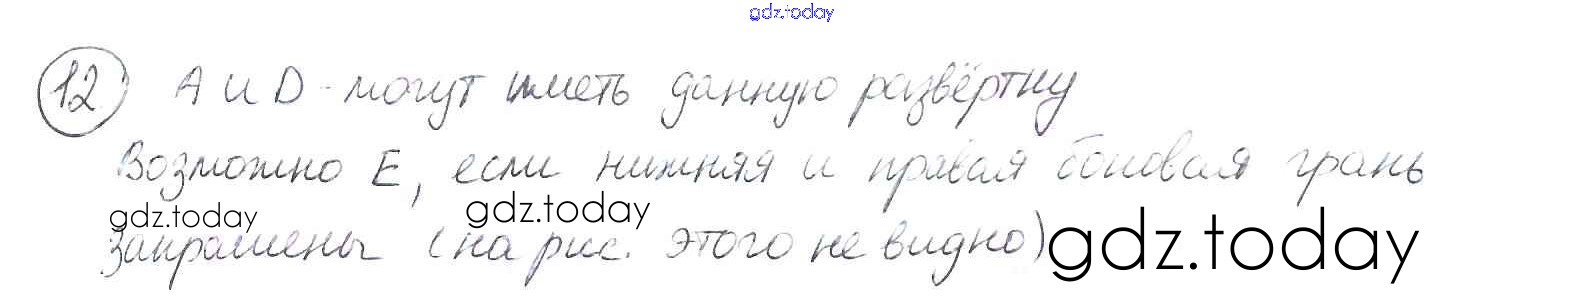 gdz.today
12 А и D - могут иметь данную развёртку
Возможно Е, если нижняя и правая боковая грань
gdz.today gdz.today
закрашены (на рис. этого не видно)
gdz.today